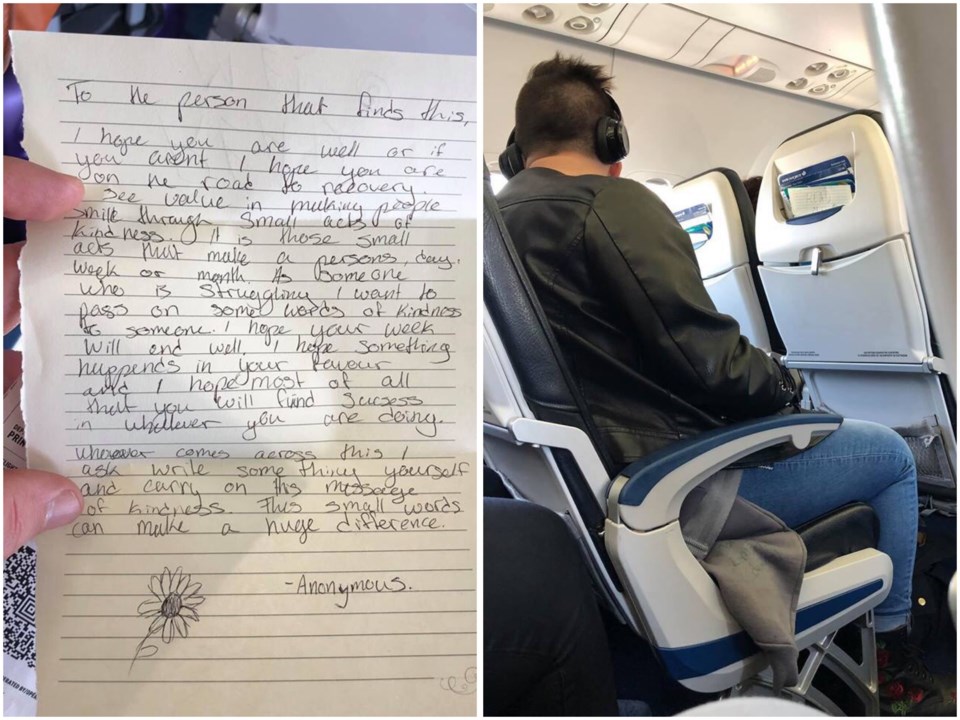 To the person that finds this,
I hope you are well or if
you arent I hope you are
on the road to recovery.
I see value in making people
smile through small acts of
kindness. It is those small
acts that make a persons day,
week or month. As someone
who is struggling I want to
pass on some words of kindness
to someone. I hope your week
will end well, I hope something
happends in your favour
and I hope most of all
that you will find sucsess
in whatever you are doing.
whoever comes across this I
ask write something yourself
and carry on this message
of kindness. This small words
can make a huge difference.
-Anonymous.